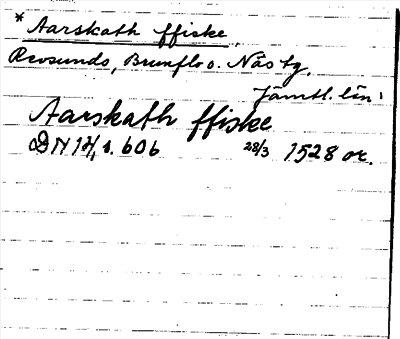 * Aarskath ffiske.
Revsunds, Brunflo o. Näs tg.
Jämtl. län:
Aarskath ffiske
DN 14/1, s. 606 28/3 1528 or.